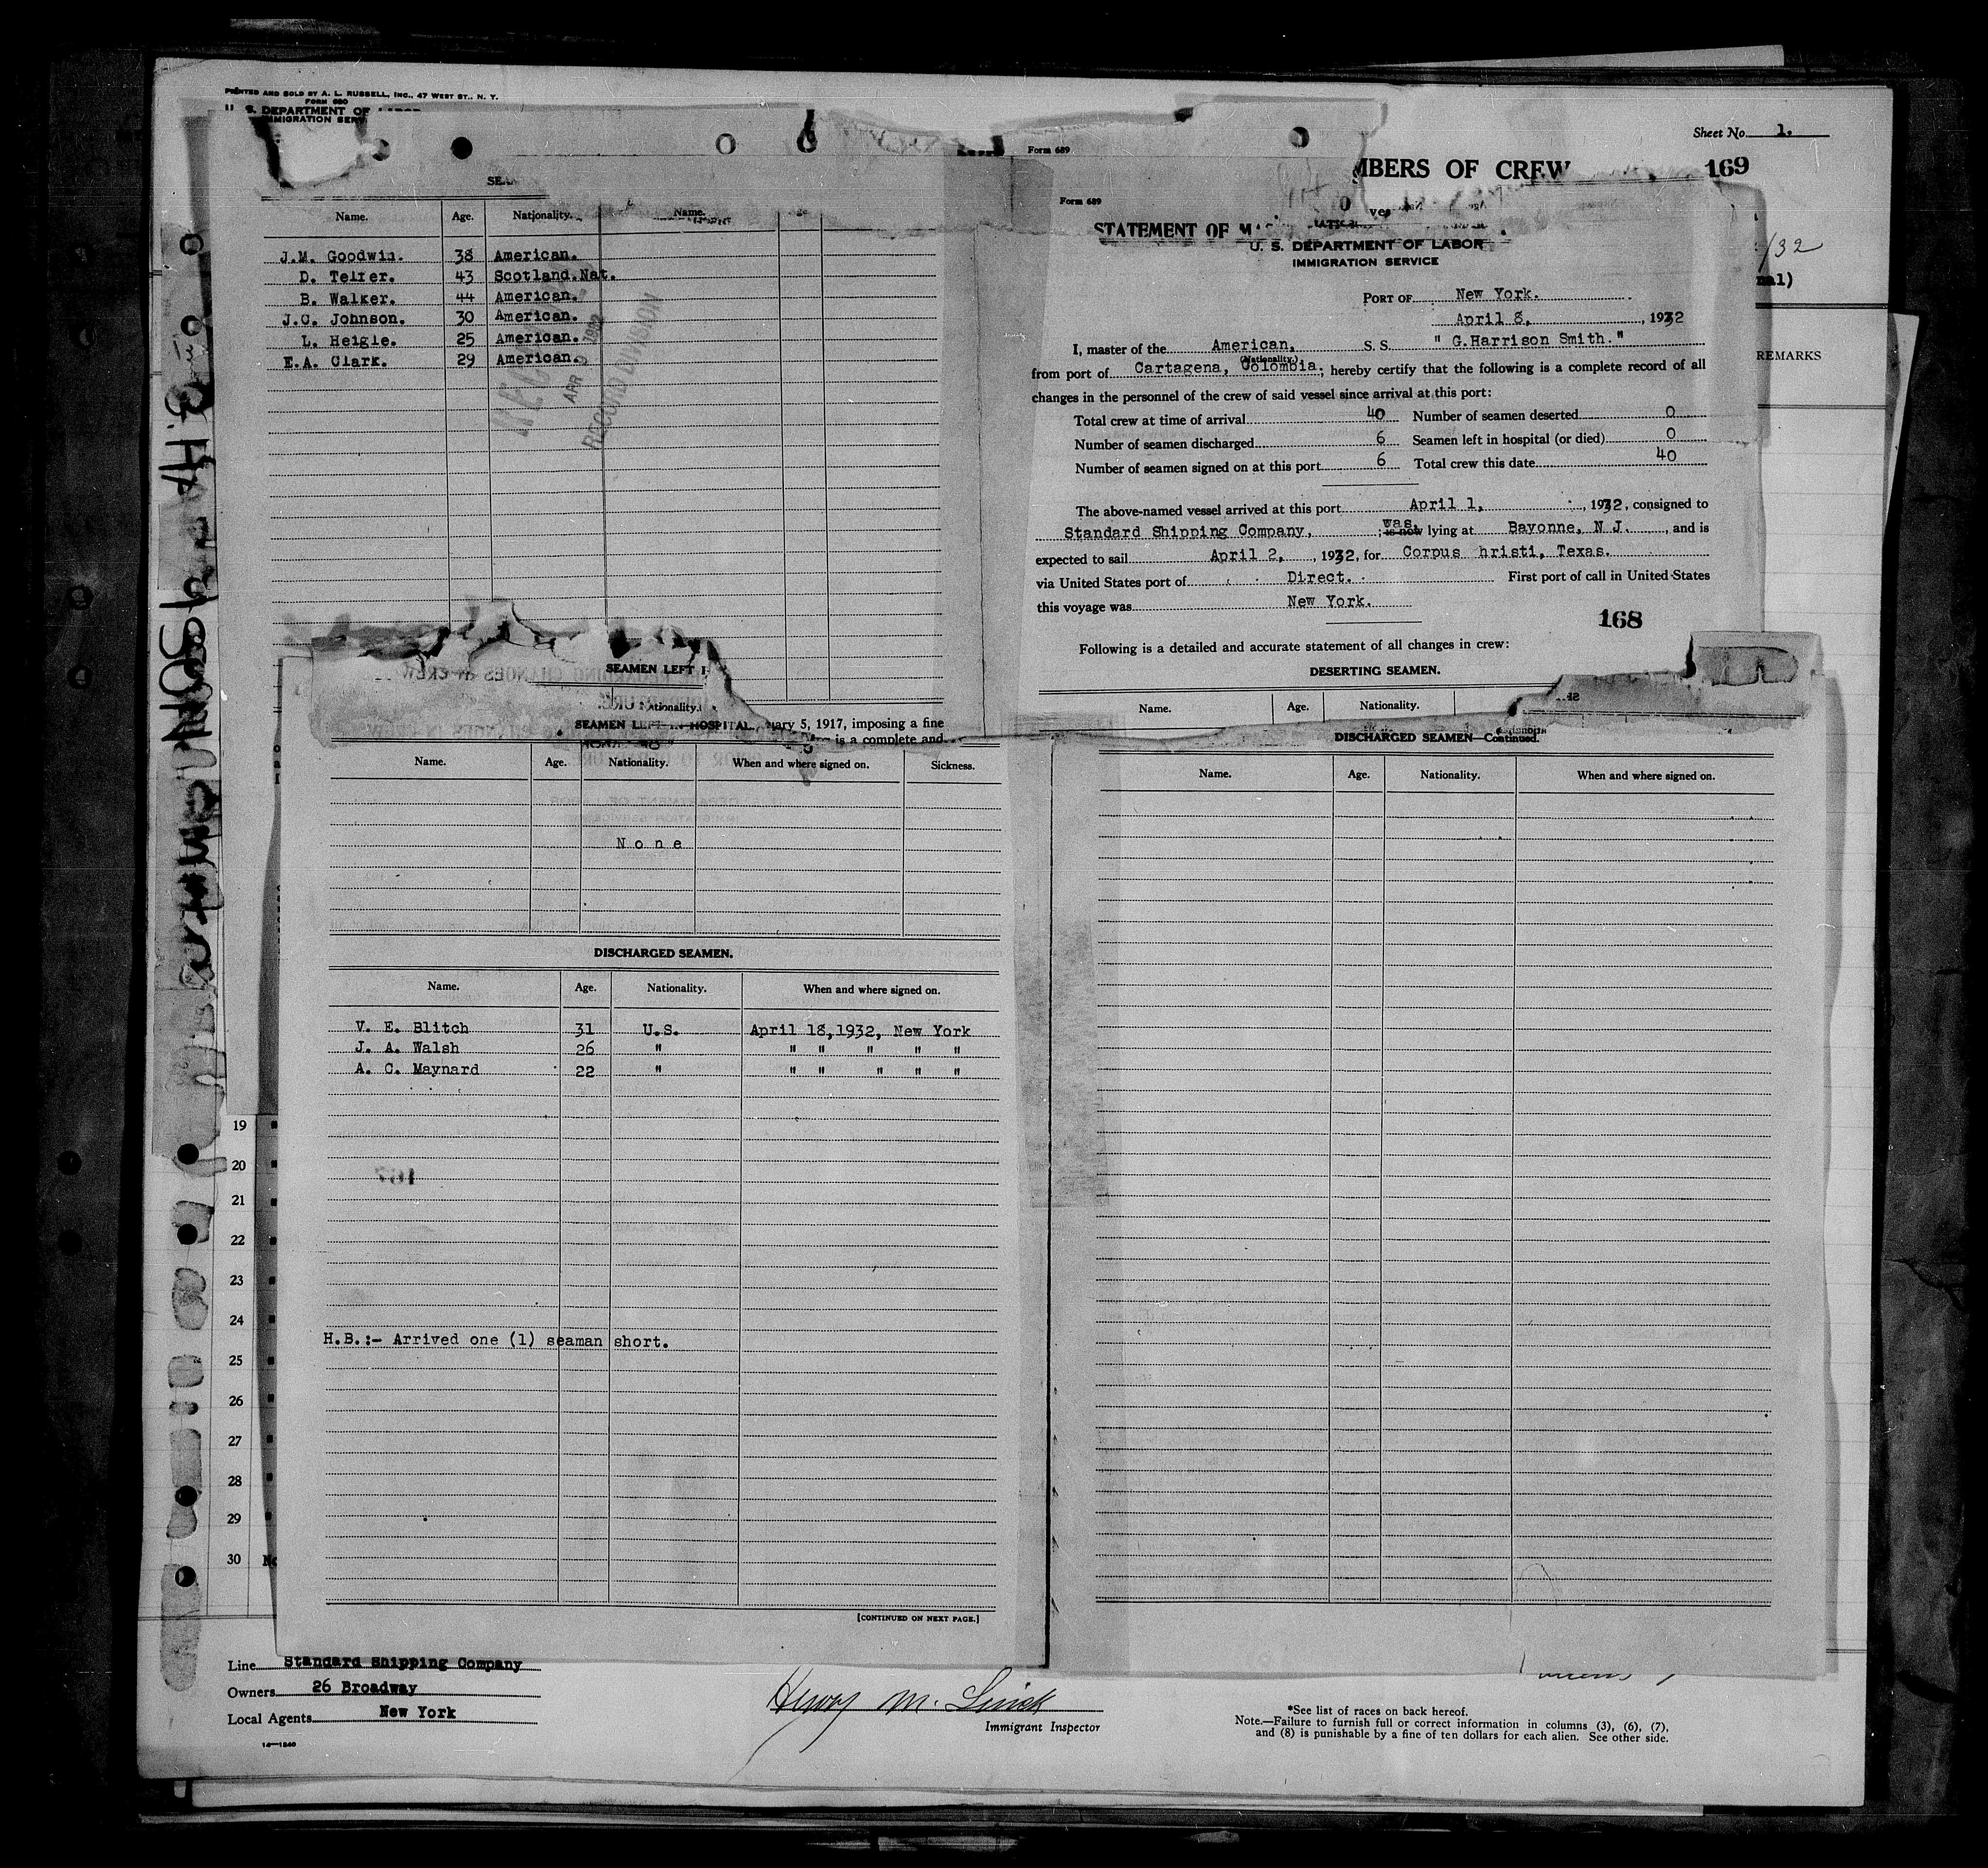 PRINTED AND SOLD BY A. L. RUSSELL, INC., 47 WEST ST., N. Y.
FORM 680
U. S. DEPARTMENT OF LABOR
IMMIGRATION SERV
Sheet No. 1.
MBERS OF CREW
169
/32
nal)
REMARKS
Name. Age. Nationality. Name.
J.M. Goodwin. 38 American.
D. Telfer. 43 Scotland.Nat.
B. Walker. 44 American.
J.C. Johnson. 30 American.
L. Heigle. 25 American.
E.A. Clark. 29 American.
APR 9 1932
RECORD DIVISION
SEAMEN LEFT I
Nationality.
Form 689
Form 689
STATEMENT OF MA
U. S. DEPARTMENT OF LABOR
IMMIGRATION SERVICE
PORT OF New York.
April 8, , 1932
I, master of the American, S. S. " G.Harrison Smith."
(Nationality.)
from port of Cartagena, Colombia; hereby certify that the following is a complete record of all
changes in the personnel of the crew of said vessel since arrival at this port:
Total crew at time of arrival 40 Number of seamen deserted 0
Number of seamen discharged 6 Seamen left in hospital (or died) 0
Number of seamen signed on at this port 6 Total crew this date 40
The above-named vessel arrived at this port April 1, , 1932, consigned to
Standard Shipping Company, ; was is now lying at Bayonne, N J. , and is
expected to sail April 2, , 1932, for Corpus hristi, Texas.
via United States port of Direct. First port of call in United States
this voyage was New York.
168
Following is a detailed and accurate statement of all changes in crew:
DESERTING SEAMEN.
Name. Age. Nationality.
uary 5, 1917, imposing a fine
is a complete and
SEAMEN LEFT IN HOSPITAL
Name. Age. Nationality. When and where signed on. Sickness.
None
DISCHARGED SEAMEN.
Name. Age. Nationality. When and where signed on.
V. E. Blitch 31 U.S. April 18,1932, New York
J. A. Walsh 26 " " " " " "
A. C. Maynard 22 " " " " " "
H.B.:- Arrived one (1) seaman short.
[CONTINUED ON NEXT PAGE.]
DISCHARGED SEAMEN—Continued.
Name. Age. Nationality. When and where signed on.
19
20
21
22
23
24
25
26
27
28
29
30
Line Standard Shipping Company
Owners 26 Broadway
Local Agents New York
14—1240
Henry M.
Immigrant Inspector
*See list of races on back hereof.
Note.—Failure to furnish full or correct information in columns (3), (6), (7),
and (8) is punishable by a fine of ten dollars for each alien. See other side.